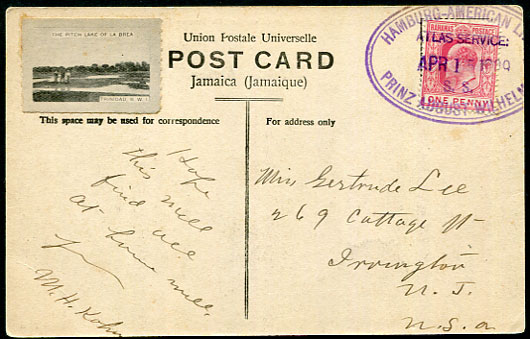 THE PITCH LAKE OF LA BREA
TRINIDAD, B. W. I.
Union Postale Universelle
POST CARD
Jamaica (Jamaique)
HAMBURG-AMERICAN
ATLAS SERVICE.
APR 1
S. S.
PRINZ AUGUST WILHELM
BAHAMAS POSTAGE
ONE PENNY
This space may be used for correspondence
For address only
Hope
this will
find all
at home well.
M. H. Kohn
Miss Gertrude Lee
269 Cottage St
Irvington
N. J.
U.S.A.